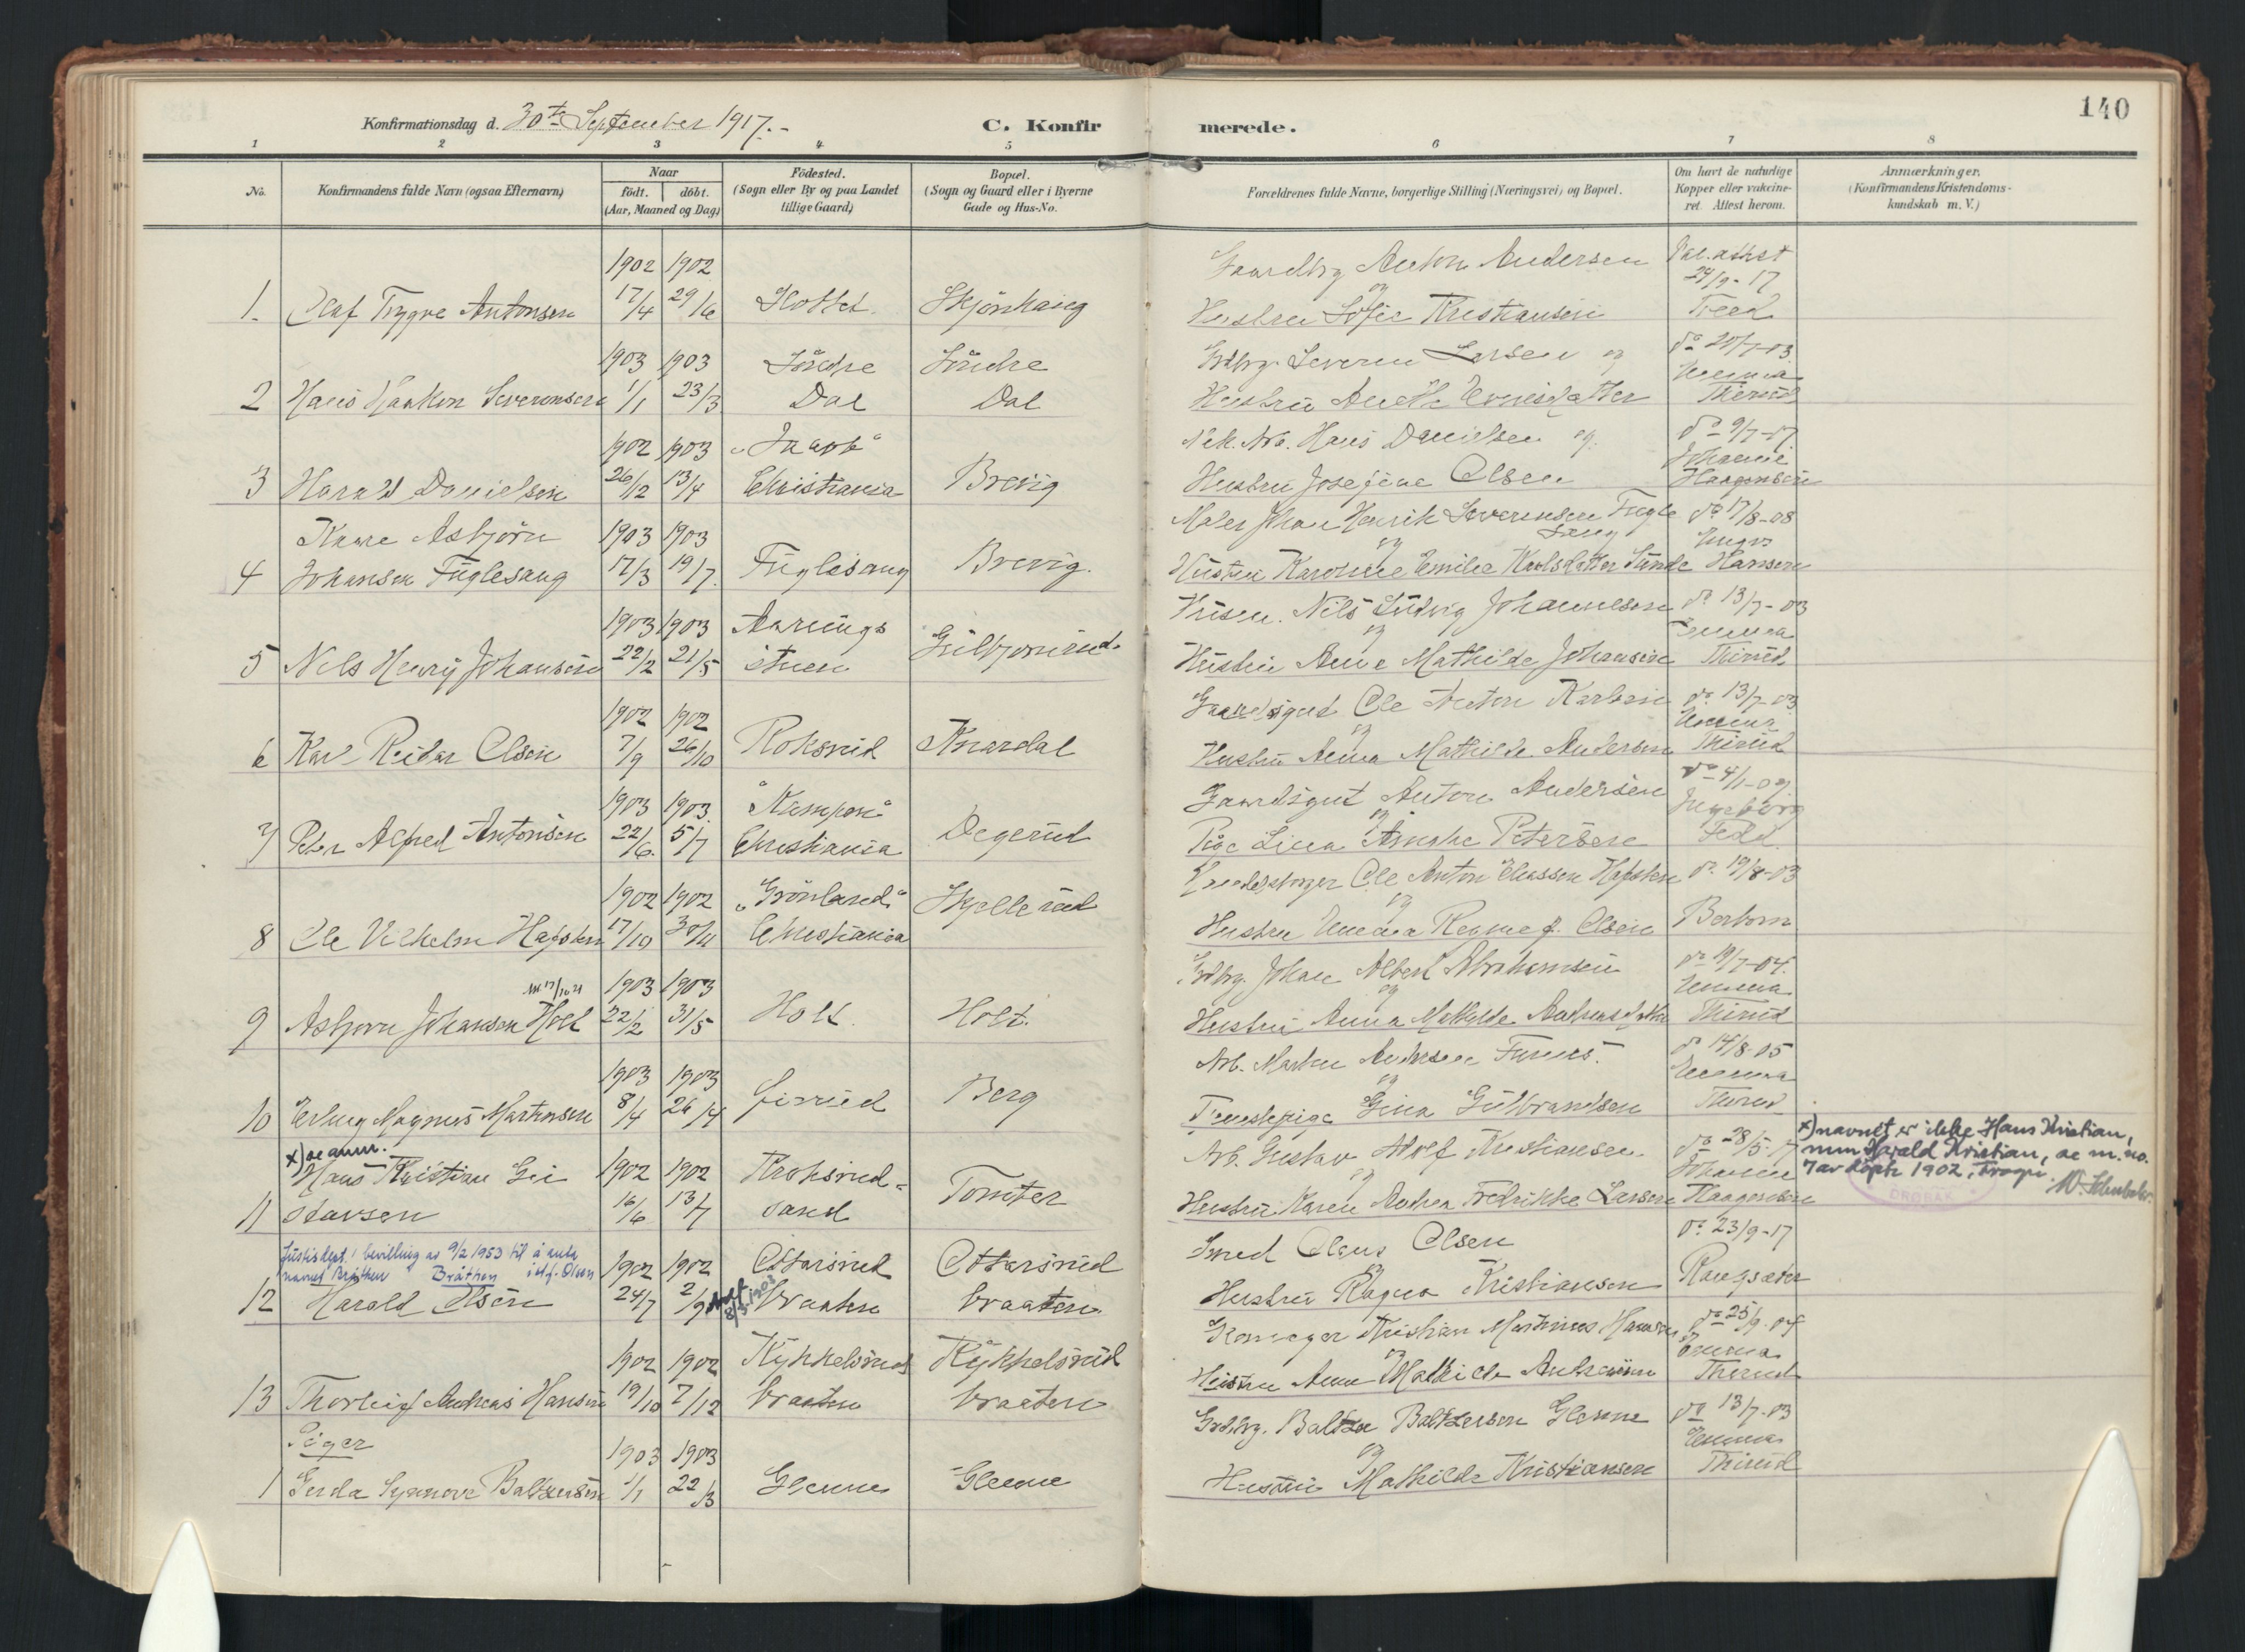 140
Konfirmationsdag d. 30te September 1917.-
C. Konfirmerede.
1 2 3 4 5 6 7 8
No.
Konfirmandens fulde Navn (ogsaa Efternavn)
Naar
födt. döbt.
(Aar, Maaned og Dag)
Födested.
(Sogn eller By og paa Landet
tillige Gaard)
Bopæl.
(Sogn og Gaard eller i Byerne
Gade og Hus-No.
Forældrenes fulde Navne, borgerlige Stilling (Næringsvei) og Bopæl.
Om havt de naturlige
Kopper eller vakcine-
ret. Attest herom.
Anmærkninger.
(Konfirmandens Kristendoms-
kundskab m. V.)
1902 1902 Gaardbrg Anton Andersen Vac. attest
og 24/9-17
1. Olaf Trygve Antonsen 17/4 29/6 Slottet Skjönhaug Hustru Sofie Kristiansen
1903 1903 Söndre Söndre Gdbrg. Severin Larsen og do 20/7-03
Emma
2 Hans Haakon Severinsen 1/1 23/3 Dal Dal Hustru Thirud
1902 1903 Hans Danielsen og do 9/7-17
Johanne
3 Harald Danielsen 26/12 13/4 Christiania Brevig Hustru Josefine Olsen Haagensen
Kaare Asbjörn 1903 1903 Maler Johan Henrik Severinsen Fugle do 17/8-08
sang
4 Johansen Fuglesang 17/3 19/7 Fuglesang Brevig. Hustru Karoline Emilie Karlsdatter Sunde Hansen
1903 1903 Nils Ludvig Johannesen do 13/7-03
og Emma
5 Nils Henry Johansen 22/2 21/5 stuen Hustru Anna Mathilde Johansen Thirud
1902 1902 Gaardsgut Ole Anton Karlsen do 13/7-03
og Emma
6 Karl Reidar Olsen 7/9 26/10 Roksrud Knardal Hustru Anna Mathilde Andersen Thirud
1903 1903. "Kampen" Gaardsgut Anton Andersen do 4/1-09
og Ingeborg
7 Peter Alfred Antonsen 22/6. 5/7 Christiania Degerud Pige Lina Petersen
1902 1902 "Grönland" Skjellerud Ole Anton Eliassen Hafsten do 19/8-03
og
8 Ole Vilhelm Hafsten 17/10 30/11 Christiania Hustru Emma Regine f. Olsen
1903 1903 Gdbrg. Johan Albert Abrahamsen do 19/7-04.
og Emma
9 Asbjörn Johansen Holt 22/2 31/5 Holt. Holt. Hustru Anna Mathilde Thirud
1903 1903 Arb. Martin Andersen do 14/8-05
og Emma
10 Erling Magnus Martinsen 8/4 26/4 Berg Tjenestepige Gina Gulbrandsen Thirud
x) se anm.
Hans Kristian Gu 1902 1902 Kroksrud- Arb. Gustav Adolf Kristiansen do 28/5-17
og Johanne
11 stavsen 16/6 13/7 sand Tomter Hustru Karen Andrea Fredrikke Larsen Haagensen
x) navnet er ikke Hans Kristian,
men Harald Kristian, se m. no.
7 av döpte 1902, Frogn.
DRØBAK
Justisdept.s bevilling av 9/2 1953 til å anta
navnet Bråthen i st. f. Olsen
Bråthen
1902 1902 Ottarsrud Ottarsrud Smed Claus Olsen do 23/9-17
og
12 Harald Olsen 24/7 2/9 8/3.1903 braaten braaten Hustru Ragna Kristiansen
1902 1902 Kykkelsrud Kykkelsrud Kristian Martinius Hansen do 25/9-04
og Emma
13 Thorleif Andreas Hansen 19/10 7/12 braaten braaten Hustru Anna Mathilde Thirud
Piger
1903 1903 Gdbrg. Baltzer Baltzersen Glenne do 13/7-03
og Emma
1 Gerda Synnöve Baltzersen 1/1 22/3 Glenne Glenne Hustru Mathilde Kristiansen Thirud